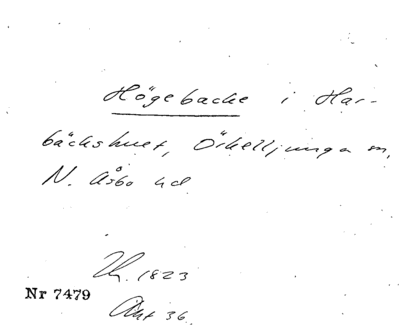 Högebacke i Har-
bäckshult, Örkelljunga sn,
N. Åsbo hd
1823
Nr 7479
Akt 36